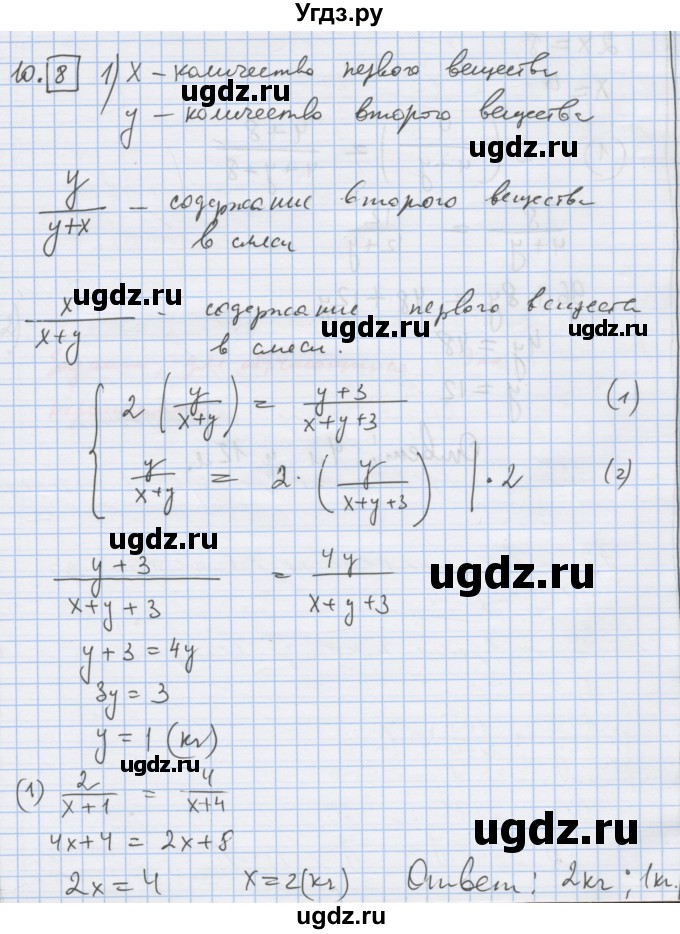 Угдз.ру
10. 8 1) x – количество первого вещества
ugdz.ru
y – количество второго вещества
ugdz.ru
y/(y+x) – содержание второго вещества
в смеси
ugdz.ru
x/(x+y) – содержание первого веществa
ugdz.ru
в смеси.
{ 2 (y/(x+y)) = (y+3)/(x+y+3) (1)
y/(x+y) = 2·(y/(x+y+3)) | · 2 (2)
ugdz.ru
(y+3)/(x+y+3) = 4y/(x+y+3)
ugdz.ru
y+3 = 4y
3y = 3
y = 1 (кг)
ugdz.ru
(1) 2/(x+1) = 4/(x+4)
4x+4 = 2x+8
ugdz.ru
2x = 4 x = 2(кг) Ответ: 2кг; 1кг.
ugdz.ru